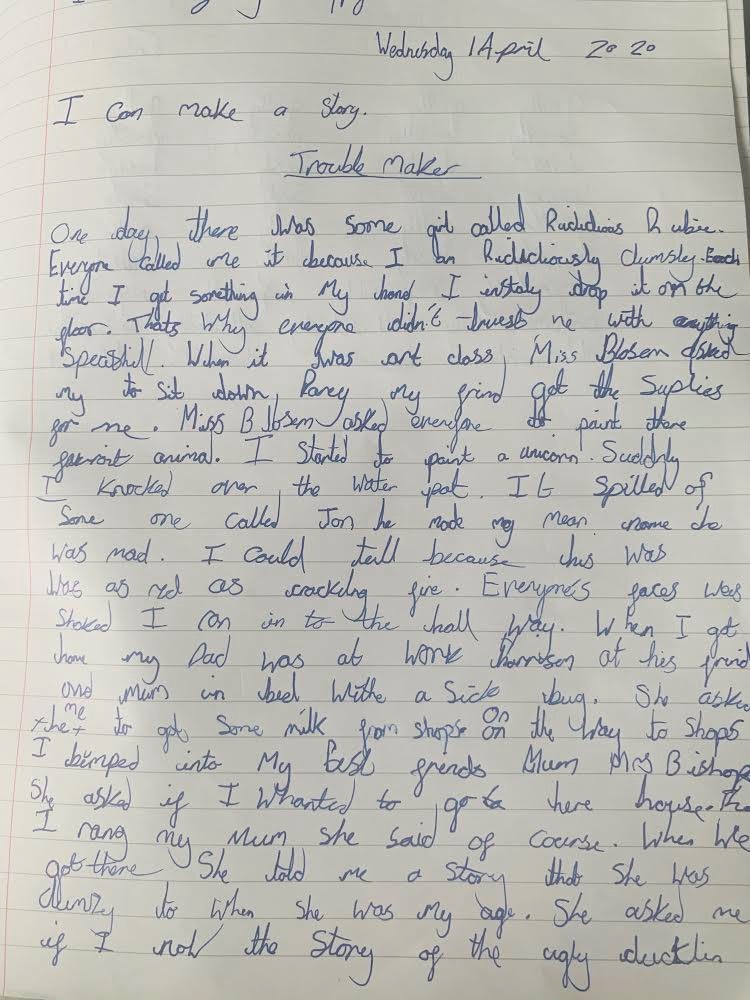 Wednesday 1 April 2020
I can make a story.
Trouble Maker
One day, there was some girl called Rudidious Rubie.
Everyone called me it because I an Rudicliously clumsly. Each
time I got something in my hand I instaly drop it on the
floor. Thats why everyone didn't trust me with anything
Speashill. When it was art class, Miss Blosem asked
my to sit down, Parcy my frind got the Suplies
for me. Miss Blosem asked everyone to paint there
favroit animal. I started to paint a unicorn. Suddnly
I knocked over the water pot. It spilled of
some one called Jon he made my mean name he
was mad. I could tell because his was
was as red as cracking fire. Everyones faces was
shoked I ran in to the hall way. When I got
home my Dad was at work Harrison at his frind
and mum in bed withe a sick bug. She aske
me to got some milk from shops on the way to shops
I bumped into my best frends Mum Mrs Bishop
She asked if I whanted to go to here house.
I rang my Mum she said of course. When we
got there She told me a story that she was
clumzy to when she was my age. She asked me
if I now the Story of the ugly ducklin